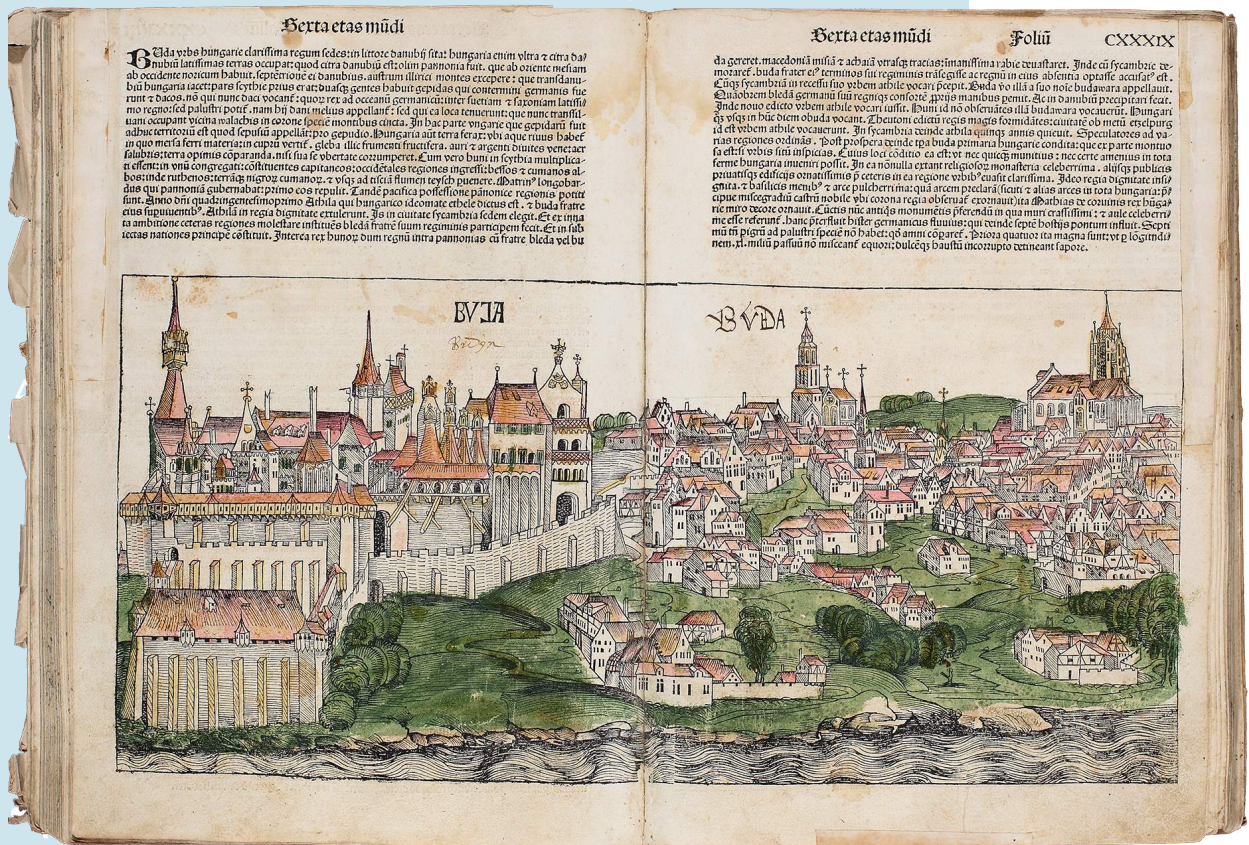 Sexta etas mũdi
BUda vrbs hungarie clarissima regum sedes: in littore danubij sita: hungaria enim vltra ⁊ citra da
nubiũ latissimas terras occupat: quod citra danubiũ est: olim pannonia fuit. que ab oriente mesiam
ab occidente noricum habuit. septẽtrionẽ ei danubius. austrum illirici montes excepere: que transdanu⸗
biũ hungaria iacet: pars scythie prius erat: duasq; gentes habuit gepidas qui contermini germanis fue
runt ⁊ dacos. nõ qui nunc daci vocant᷑: quorũ rex ad occanũ germanicũ: inter suetiam ⁊ saxoniam latissi⸗
mo regno: sed palustri potit᷑. nam hij dani melius appellant᷑: sed qui ea loca tenuerunt: que nunc transsil⸗
uani occupant vicina walachis in corone speciẽ montibus cincta. In hac parte vngarie que gepidarũ fuit
adhuc territoriũ est quod sepusiũ appellãt: pro gepudio. Hungaria aũt terra ferax: vbi aque riuus habet᷑
in quo mersa ferri materia: in cuprũ vertit᷑. gleba illic frumenti fructifera. auri ⁊ argenti diuites vene: aer
salubris: terra opimis cõparanda. nisi sua se vbertate corrumperet. Cum vero huni in scythia multiplica⸗
ti essent: in vnũ congregati: cõstituentes capitaneos: occidẽtales regiones ingressi: bessos ⁊ cumanos al⸗
bos: inde ruthenos: terrãq; nigroꝝ cumanoꝝ. ⁊ vsq; ad ticiũ flumen teysch puenere. Matrinꝰ longobar⸗
dus qui pannoniã gubernabat: primo eos repulit. Tandẽ pacifica possessione pãnonice regionis potiti
sunt. Anno dñi quadringentesimoprimo Athila qui hungarico ideomate ethele dictus est. ⁊ buda fratre
eius supuiuentibꝰ. Athilã in regia dignitate extulerunt. Is in ciuitate sycambria sedem elegit. Et ex inna
ta ambitione ceteras regiones molestare instituẽs bledã fratrẽ suum regiminis participem fecit. Et in sub
iectas nationes principẽ cõstituit. Interea rex hunoꝝ dum regnũ intra pannonias cũ fratre bleda vel bu
Sexta etas mũdi
Foliũ
CXXXIX
da gereret. macedoniã misiã ⁊ achaiã vtrasq; tracias: imanissima rabie deuastaret. Inde cũ sycambrie de⸗
moraret᷑. buda frater eiꝰ terminos sui regiminis trãsegisse ac regnũ in eius absentia optasse accusatꝰ est.
Cũq; sycambriã in recessu suo vrbem athile vocari pcepit. Buda vo illã a suo noĩe budawara appellauit.
Quãobrem bledã germanũ suũ regniq; consortẽ pprijs manibus pemit. Ac in danubiũ precipitari fecat.
Inde nouo edicto vrbem athile vocari iussit. Huni id nõ obseruãtes illã budawara vocauerũt. Hungari
q; vsq; in hũc diem obuda vocant. Theutoni edictũ regis magis formidãtes: ciuitatẽ ob metũ etzelpurg
id est vrbem athile vocauerunt. In sycambria deinde athila quinq; annis quieuit. Speculatores ad va⸗
rias regiones ordinãs. Post prospera deinde tpa buda primaria hungarie condita: que ex parte montuo
sa est: si vrbis sitũ inspicias. Cuius loci cõditio ea est: vt nec quicq; munitius: nec certe amenius in tota
ferme hungaria inueniri possit. In ea nõnulla extant religiosoꝝ monasteria celeberrima. alijsq; publicis
priuatisq; edificijs ornatissimis p ceteris in ea regione vrbibꝰ euasit clarissima. Ideo regia dignitate insi
gnita. ⁊ basilicis menibꝰ ⁊ arce pulcherrima: quã arcem preclarã (sicuti ⁊ alias arces in tota hungaria: p̃
cipue miscegradiũ castrũ nobile vbi corona regia obseruat᷑ exornauit) ita Mathias de coruinis rex hũga⸗
rie miro decore ornauit. Cũctis nũc antiqs monumẽtis pferendũ in qua muri crassissimi: ⁊ aule celeberri⸗
me esse referunt᷑. hanc pterfluit hister germanicus fluuius: qui deinde septẽ hostijs pontum influit. Septi
mũ tñ pigrũ ad palustri speciẽ nõ habet: qd amni cõparet᷑. Priora quatuor ita magna sunt: vt p lõgitudi⸗
nem. xl. miliũ passuũ nõ misceant᷑ equori: dulcẽq; haustũ incorrupto detineant sapore.
BVIA
BVDA